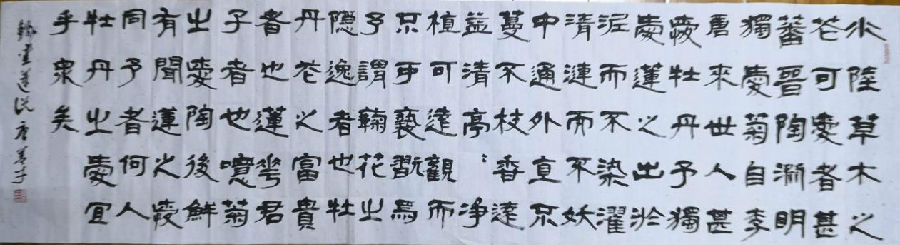 水陸草木之
花可愛者甚
蕃晉陶淵明
獨愛菊自李
唐來世人甚
愛牡丹予獨
愛蓮之出於
泥而不染濯
清漣而不妖
中通外直不
蔓不枝香遠
益清亭〻淨
植可遠觀而
不可褻翫焉
予謂菊花之
隱逸者也牡
丹花之富貴
者也蓮華君
子者也噫菊
之愛陶後鮮
有聞蓮之愛
同予者何人
牡丹之愛宜
乎眾矣